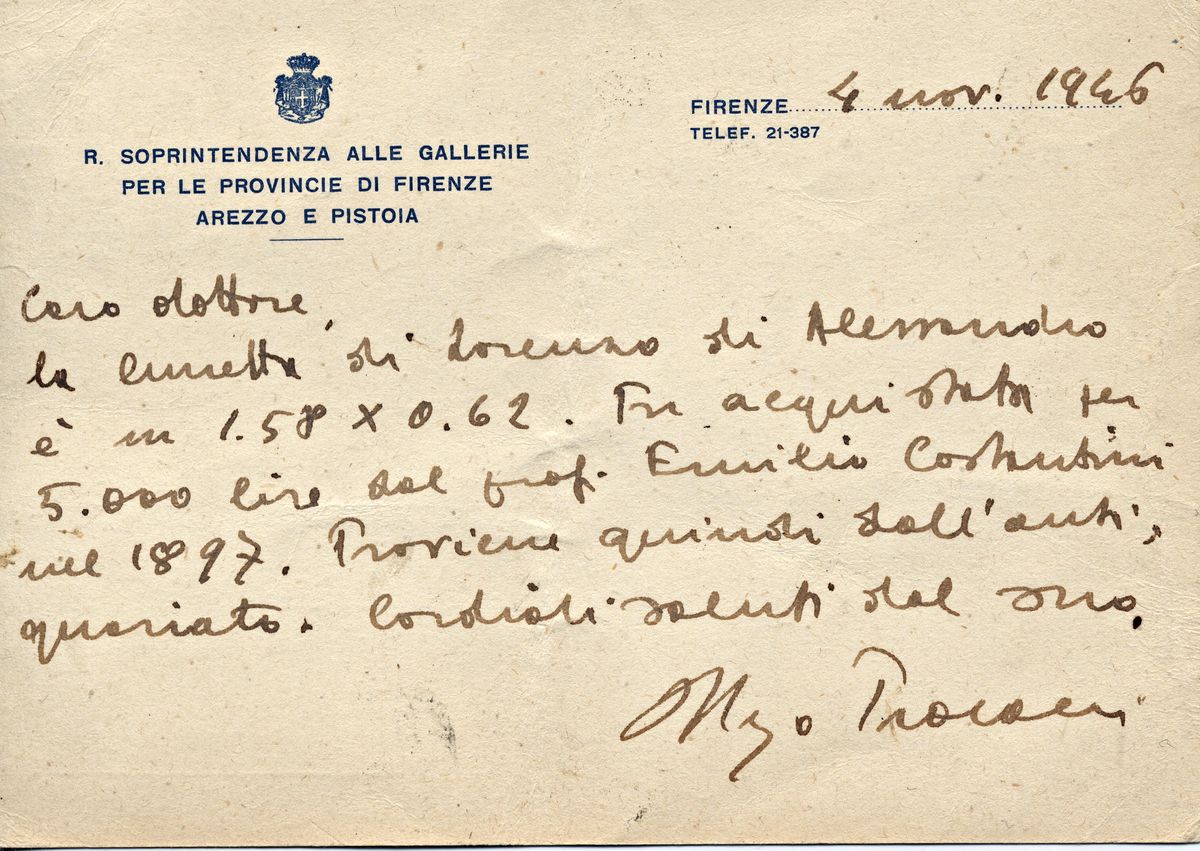 R. SOPRINTENDENZA ALLE GALLERIE
PER LE PROVINCIE DI FIRENZE
AREZZO E PISTOIA
FIRENZE 4 nov. 1946
TELEF. 21-387
Caro dottore,
la lunetta di Lorenzo di Alessandro
è m 1.58 x 0.62. Fu acquistata per
5.000 lire dal prof. Emilio Costantini
nel 1897. Proviene quindi dall'anti-
quariato. Cordiali saluti dal suo.
Ugo Procacci